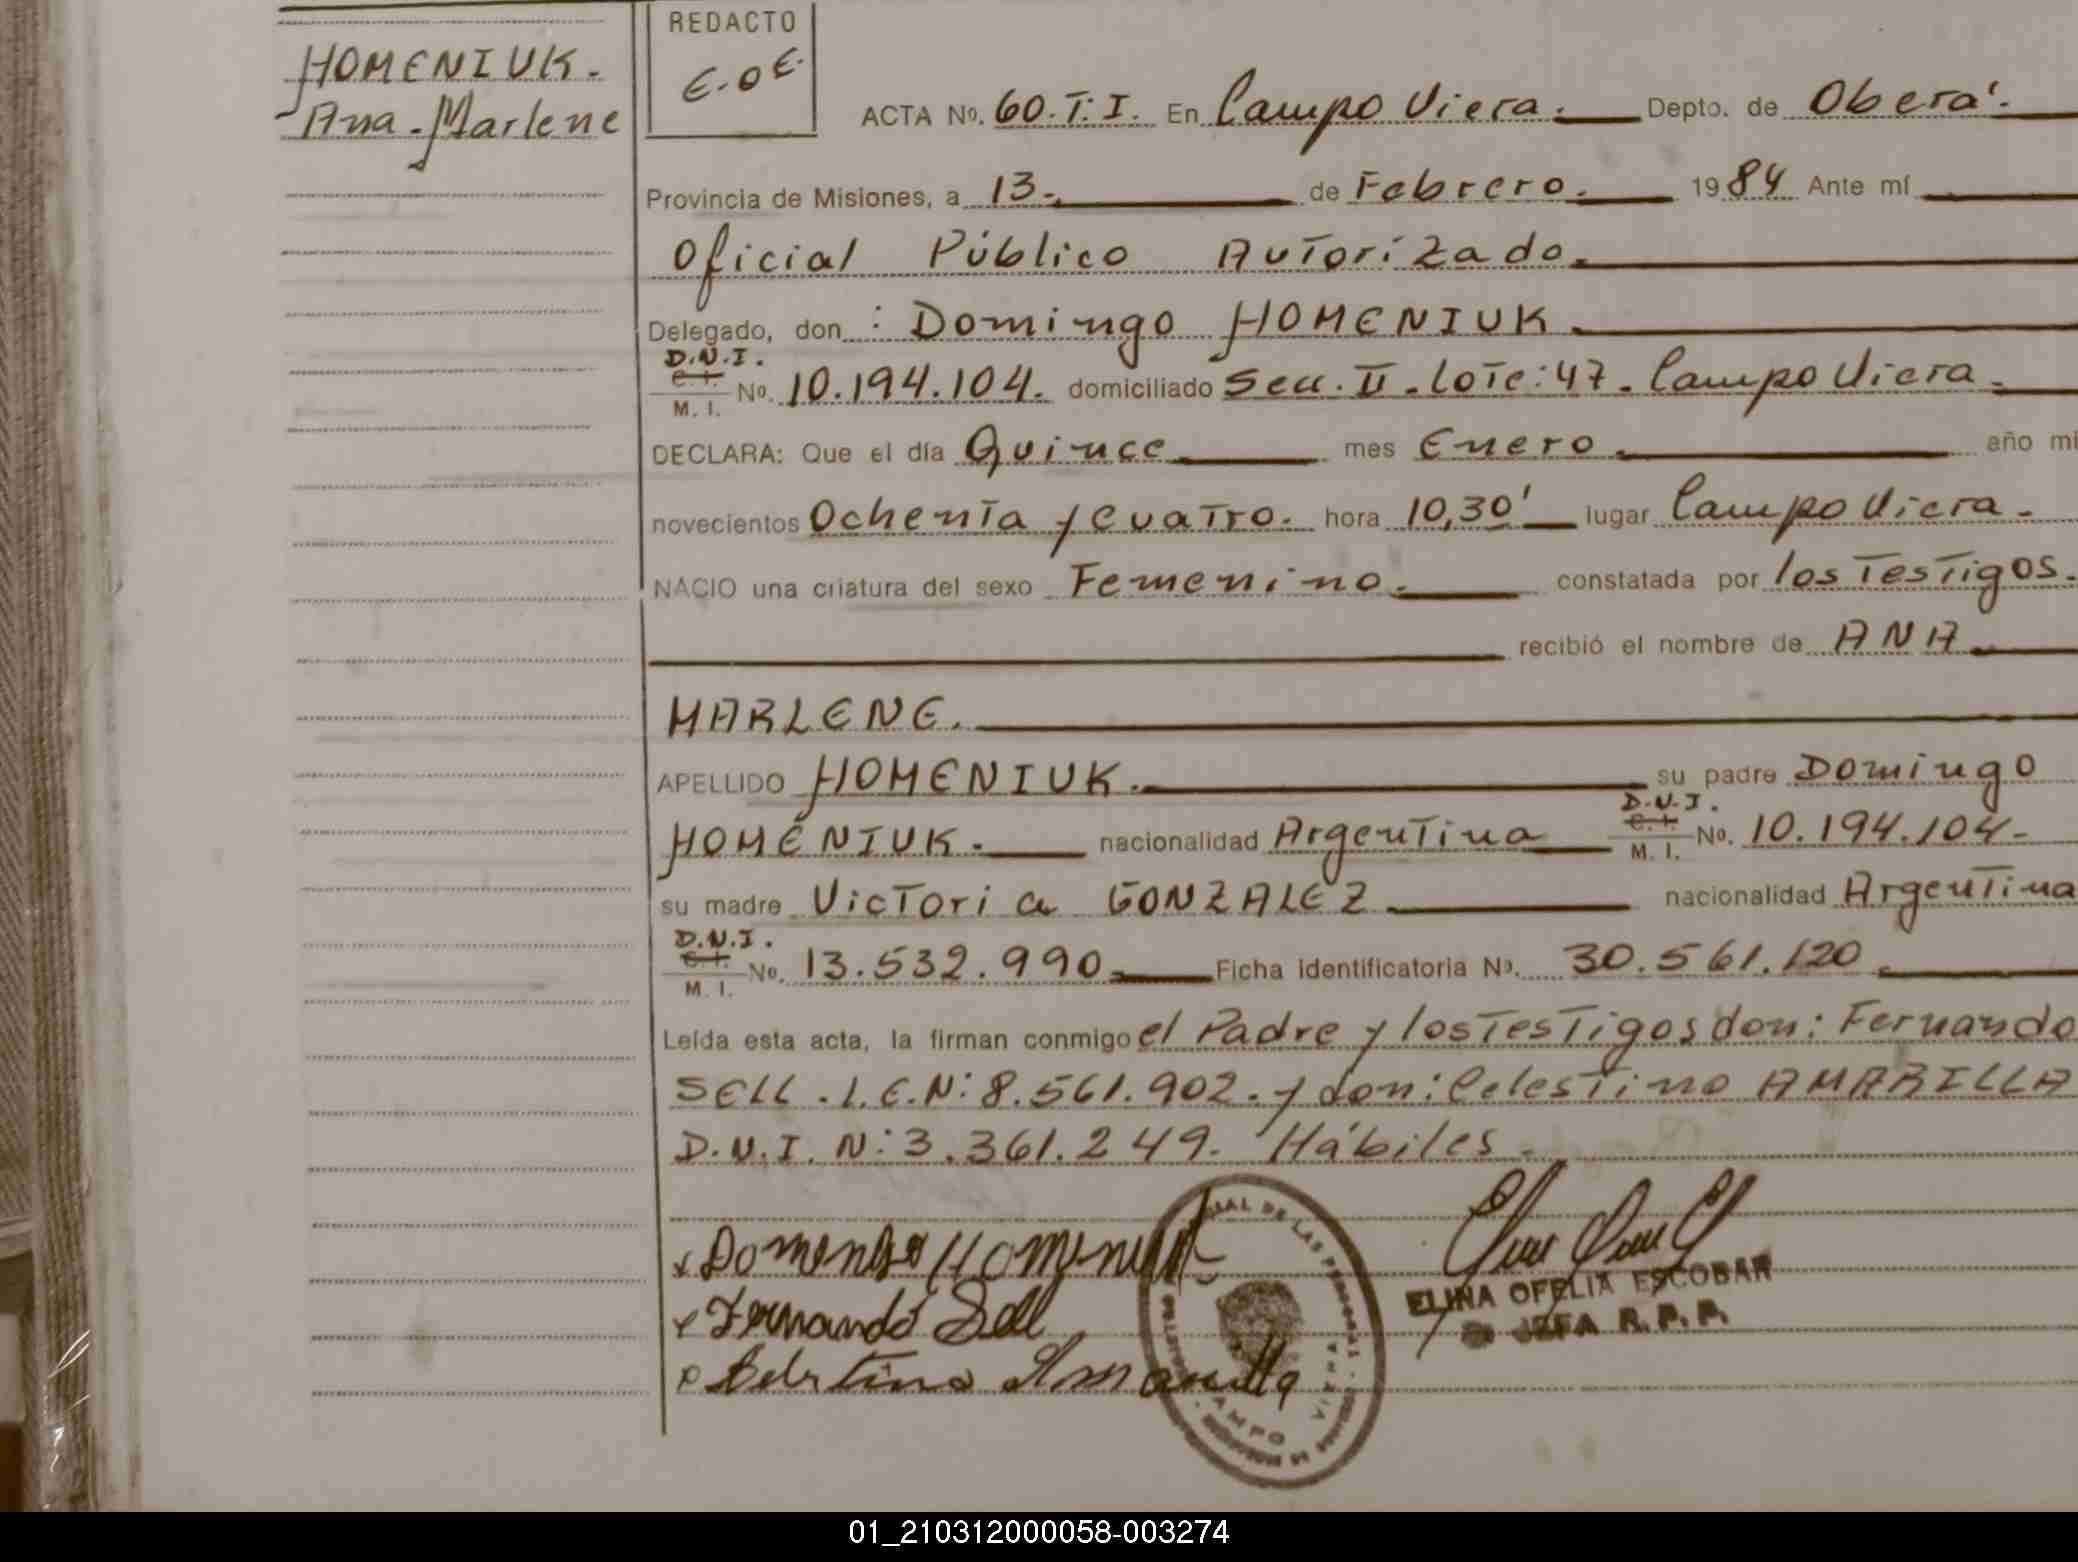 HOMENIUK.
Ana. Marlene
REDACTO
E.O.E.
ACTA No. 60.T:I. En Campo Viera. Depto. de Oberá.
Provincia de Misiones, a 13. de Febrero. 1984 Ante mí
Oficial Público Autorizado.
Delegado, don : Domingo HOMENIUK
D.N.I.
C. I.
M. I.
No. 10.194.104. domiciliado Secc. II. Lote: 47. Campo Viera
DECLARA: Que el día Quince mes Enero año mi
novecientos Ochenta y Cuatro. hora 10,30' lugar Campo Viera.
NACIO una criatura del sexo Femenino. constatada por los Testigos.
recibió el nombre de ANA
MARLENE.
APELLIDO HOMENIUK. su padre Domingo
HOMENIUK. nacionalidad Argentina
D.N.I.
C. I.
M. I.
No. 10.194.104-
su madre Victoria GONZALEZ nacionalidad Argentina
D.N.I.
C. I.
M. I.
No. 13.532.990. Ficha Identificatoria No. 30.561.120
Leída esta acta, la firman conmigo el Padre y los Testigos don: Fernando
SELL. L.E.N: 8.561.902. y don: Celestino AMARILLA
D.N.I. N: 3.361.249. Hábiles.
Domingo Homeniuk
Fernando Sell
Celestino Amarilla
DE LAS PERSONAS
CAMPO VIERA
ELINA OFELIA ESCOBAR
JEFA R.P.P.
01_210312000058-003274